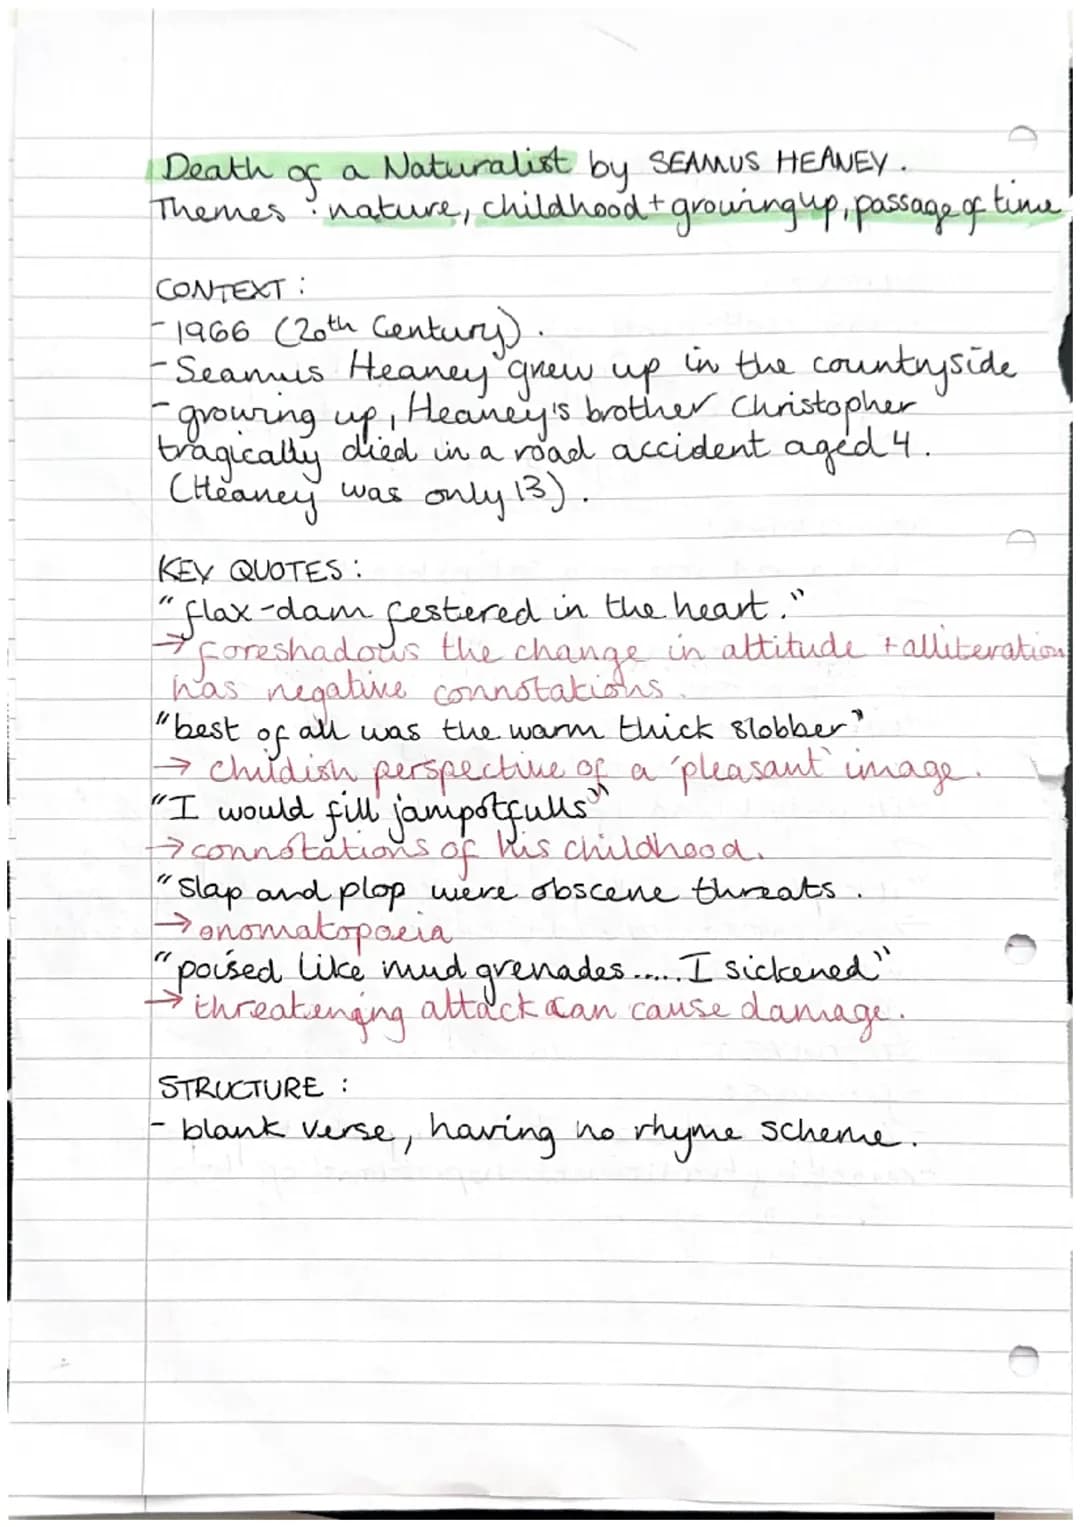 Death of a Naturalist by SEAMUS HEANEY.
Themes : nature, childhood + growing up, passage of time
CONTEXT :
- 1966 (20th Century).
- Seamus Heaney grew up in the countryside
- growing up, Heaney's brother Christopher
tragically died in a road accident aged 4.
(Heaney was only 13).
KEY QUOTES :
"flax-dam festered in the heart."
→ foreshadows the change in attitude + alliteration
has negative connotations.
"best of all was the warm thick slobber"
→ childish perspective of a 'pleasant' image.
"I would fill jampotfulls"
→ connotations of his childhood.
"slap and plop were obscene threats.
→ onomatopoeia
"poised like mud grenades..... I sickened"
→ threatenging attack can cause damage.
STRUCTURE :
- blank verse, having no rhyme scheme.